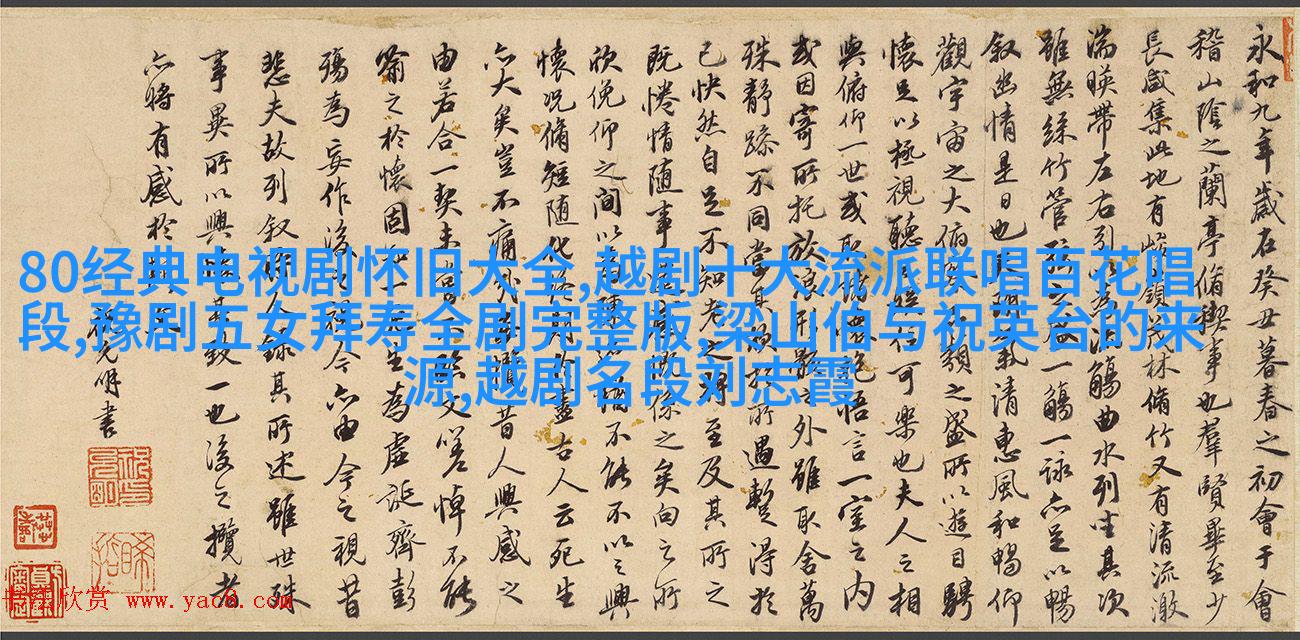 永和九年歲在癸丑暮春之初會于會
稽山陰之蘭亭脩禊事也羣賢畢至少
長咸集此地有嶺茂林脩竹又有清流激
湍暎帶左右引以為觴曲水列坐其次
雖無絲竹管弦之一觴一詠亦足以暢
敘幽情是日也天朗氣清惠風和暢仰
觀宇宙之大俯類之盛所以遊目騁
懷足以極視聽之信可樂也夫人之相
與俯仰一世或取諸懷抱悟言一室之內
或因寄所托放浪形骸之外雖取舍萬
殊靜躁不同當其於所遇暫得於
已快然自足不知老之將至及其所之
既惓情隨事遷係之矣向之所
欣俛仰之間以猶不能不以之興
懷況脩短隨化終期於盡古人云死生
亦大矣豈不痛哉攬昔人興感之
由若合一契未臨文嗟悼不能
喻之於懷固知生為虛誕齊彭
殤為妄作後之視今亦由今之視昔
悲夫故列敘時人錄其所述雖世殊
事異所以興其致一也後之攬者
亦將有感於
祝允明書
80经典电视剧怀旧大全,越剧十大流派联唱百花唱
段,豫剧五女拜寿全剧完整版,梁山伯与祝英台的来
源,越剧名段刘志霞
书法欣赏 www.yac8.com